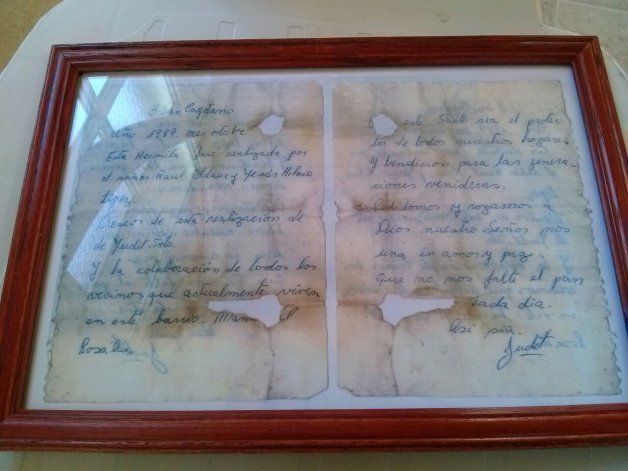 San Cayetano
Año 1989. mes octubre.
Esta Hermita fué realizada por
el señor Raul y Jesús Hilario
Lopez.
Deseos de esta realización de
de Yudit Soto.
Y la colaboración de todos los
vecinos que actualmente viven
en este barrio.
Rosales
este Santo sea el protec
tor de todos nuestro hogares
Y bendicion para las genera
ciones venideras.
Pedimos y rogamos a
Dios nuestro Señor nos
una en amor y paz
Que no nos falte el pan
cada dia.
Asi sea.
Judit